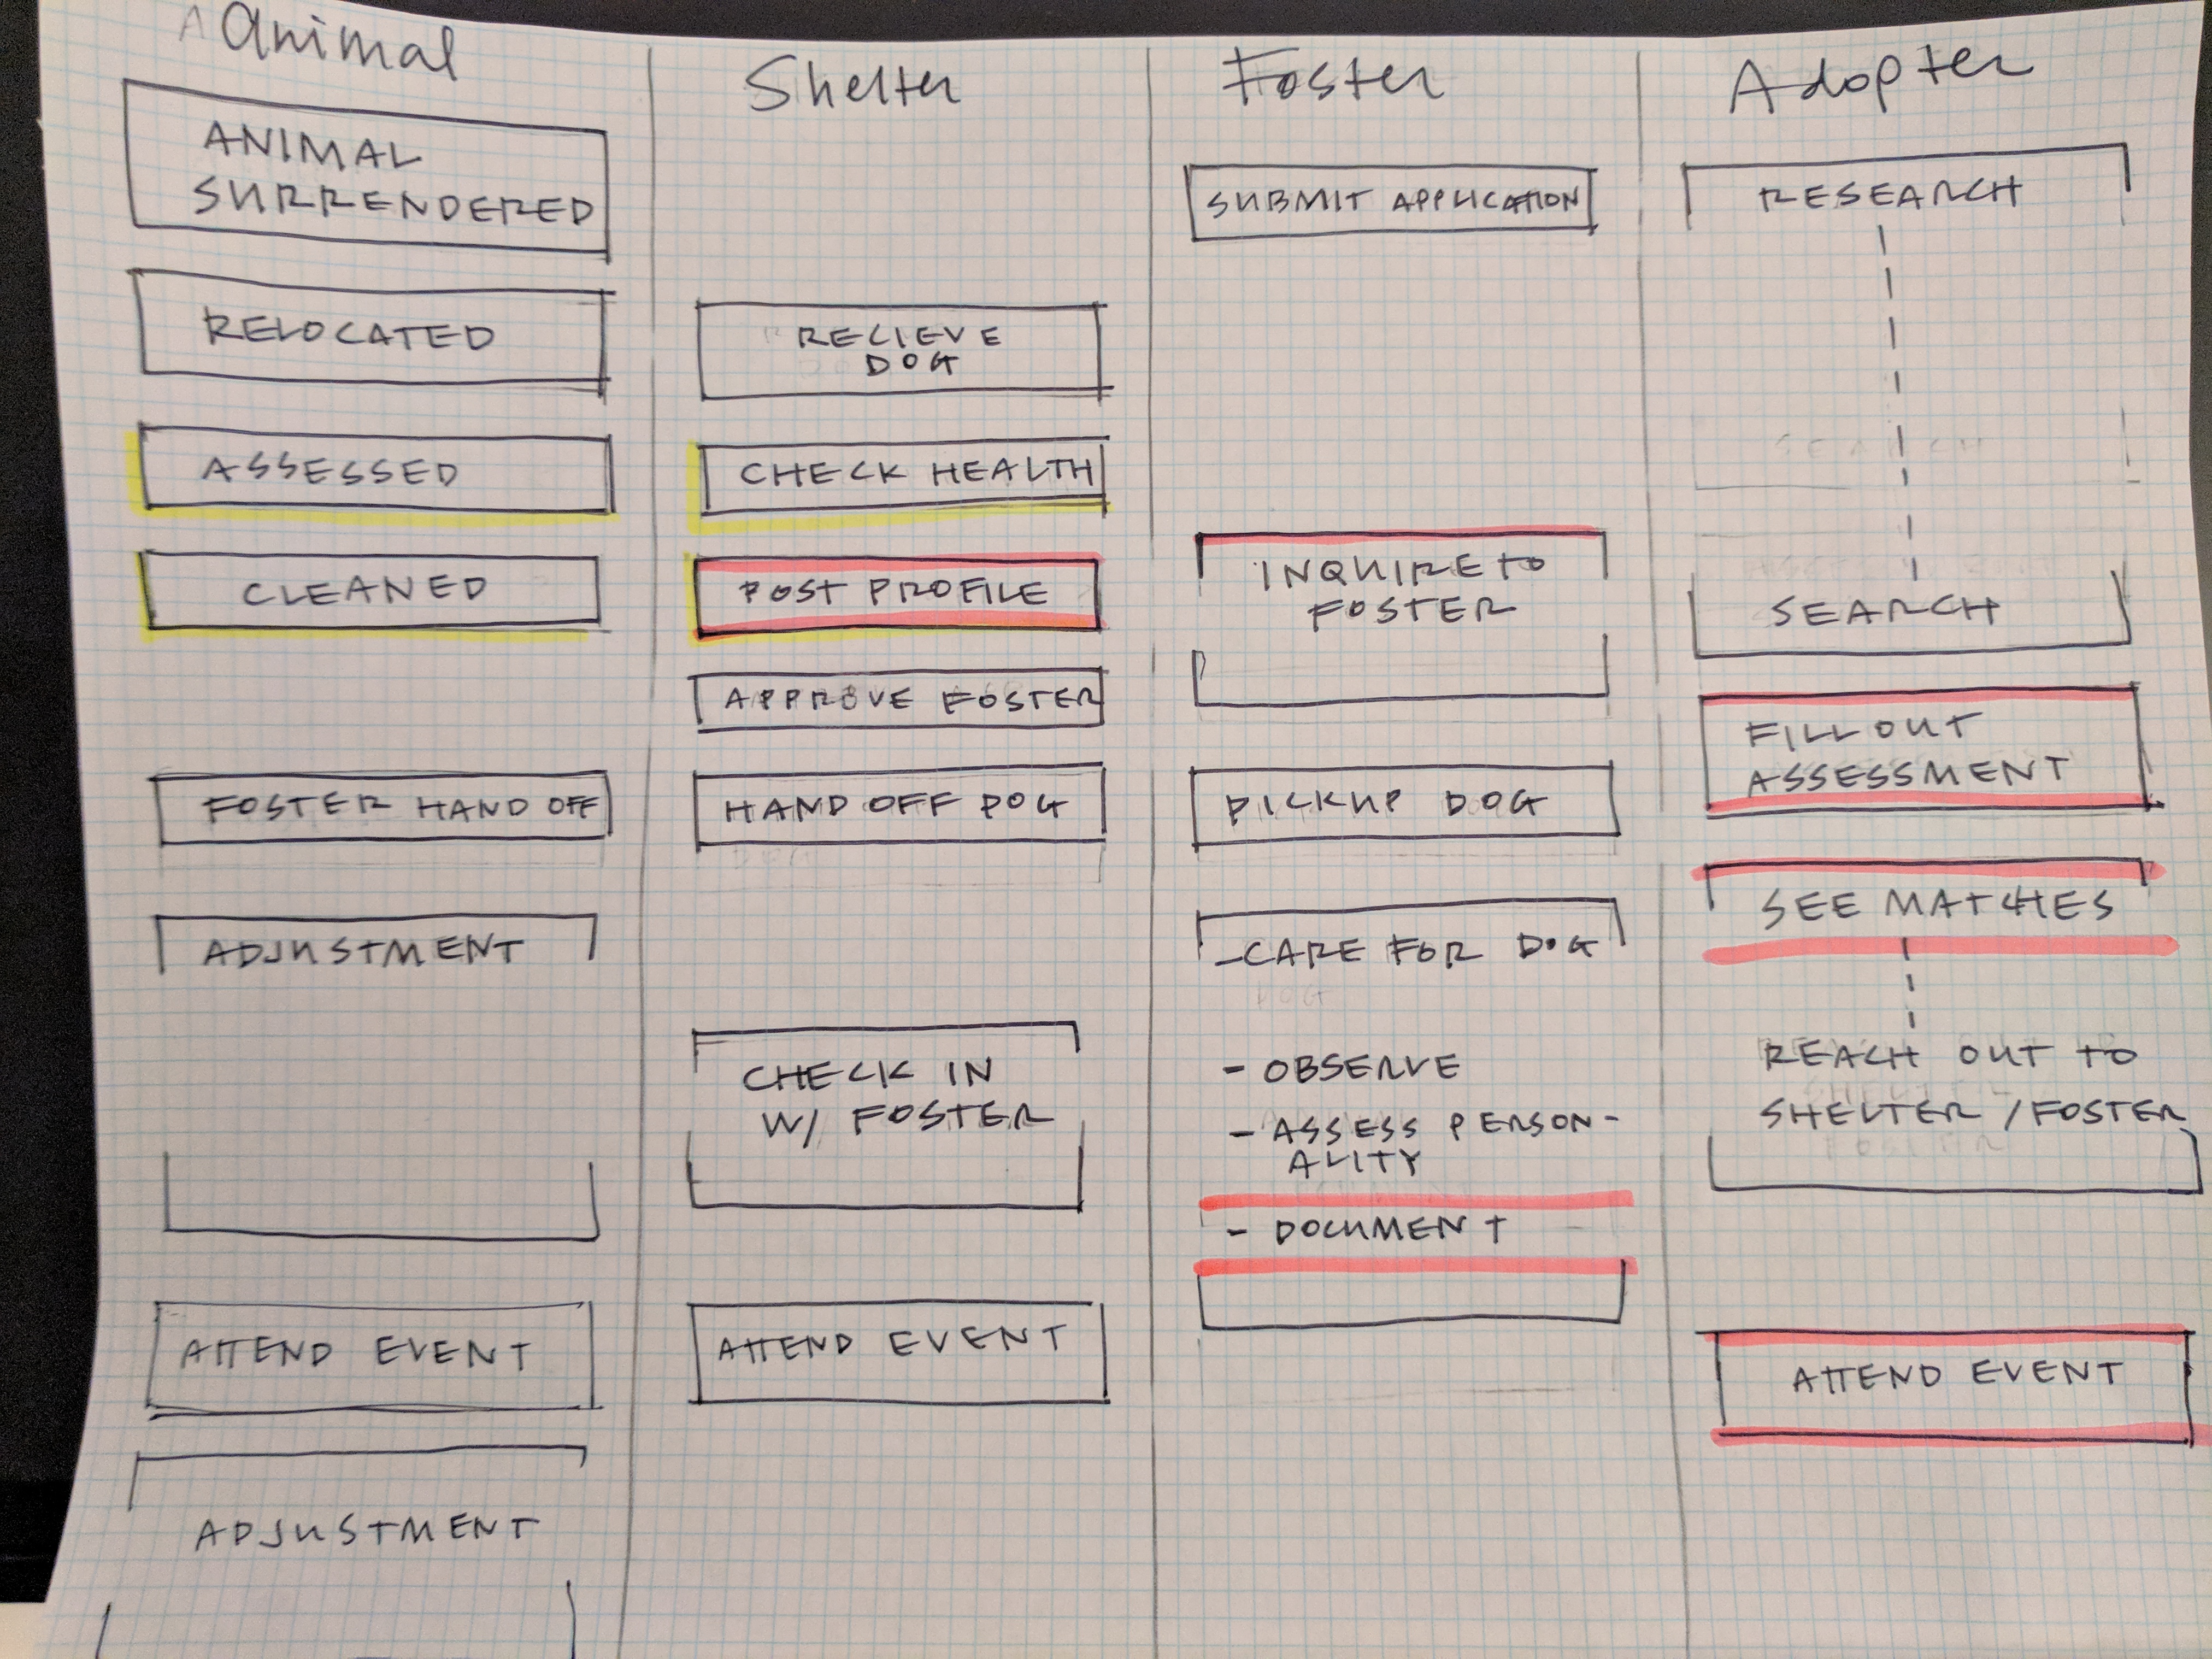 Animal
ANIMAL
SURRENDERED
RELOCATED
ASSESSED
CLEANED
FOSTER HAND OFF
ADJUSTMENT
ATTEND EVENT
ADJUSTMENT
Shelter
RECIEVE
DOG
CHECK HEALTH
POST PROFILE
APPROVE FOSTER
HAND OFF DOG
CHECK IN
W/ FOSTER
ATTEND EVENT
Foster
SUBMIT APPLICATION
INQUIRE TO
FOSTER
PICKUP DOG
- CARE FOR DOG
- OBSERVE
- ASSESS PERSON-
ALITY
- DOCUMENT
Adopter
RESEARCH
SEARCH
FILL OUT
ASSESSMENT
SEE MATCHES
REACH OUT TO
SHELTER / FOSTER
ATTEND EVENT